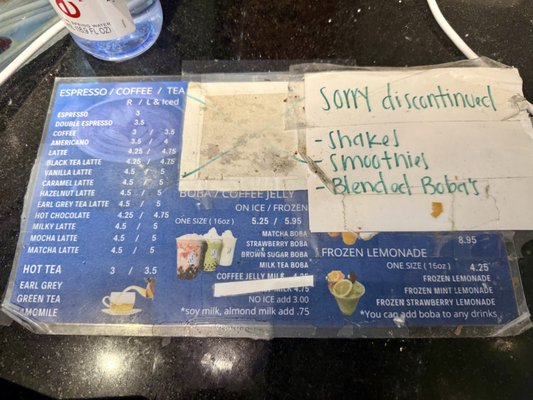 SPRING WATER
(16.9 FL OZ)
ESPRESSO / COFFEE / TEA
R / L & Iced
ESPRESSO 3
DOUBLE ESPRESSO 3.5
COFFEE 3 / 3.5
AMERICANO 3.5 / 4
LATTE 4.25 / 4.75
BLACK TEA LATTE 4.25 / 4.75
VANILLA LATTE 4.5 / 5
CARAMEL LATTE 4.5 / 5
HAZELNUT LATTE 4.5 / 5
EARL GREY TEA LATTE 4.5 / 5
HOT CHOCOLATE 4.25 / 4.75
MILKY LATTE 4.5 / 5
MOCHA LATTE 4.5 / 5
MATCHA LATTE 4.5 / 5
HOT TEA 3 / 3.5
EARL GREY
GREEN TEA
AMOMILE
BOBA / COFFEE JELLY
ON ICE / FROZEN
ONE SIZE (16oz) 5.25 / 5.95
MATCHA BOBA
STRAWBERRY BOBA
BROWN SUGAR BOBA
MILK TEA BOBA
COFFEE JELLY MILK
4.75
NO ICE add 3.00
*soy milk, almond milk add .75
Sorry discontinued
- shakes
- smoothies
- Blended Boba's
8.95
FROZEN LEMONADE
ONE SIZE (16oz) 4.25
FROZEN LEMONADE
FROZEN MINT LEMONADE
FROZEN STRAWBERRY LEMONADE
*You can add boba to any drinks